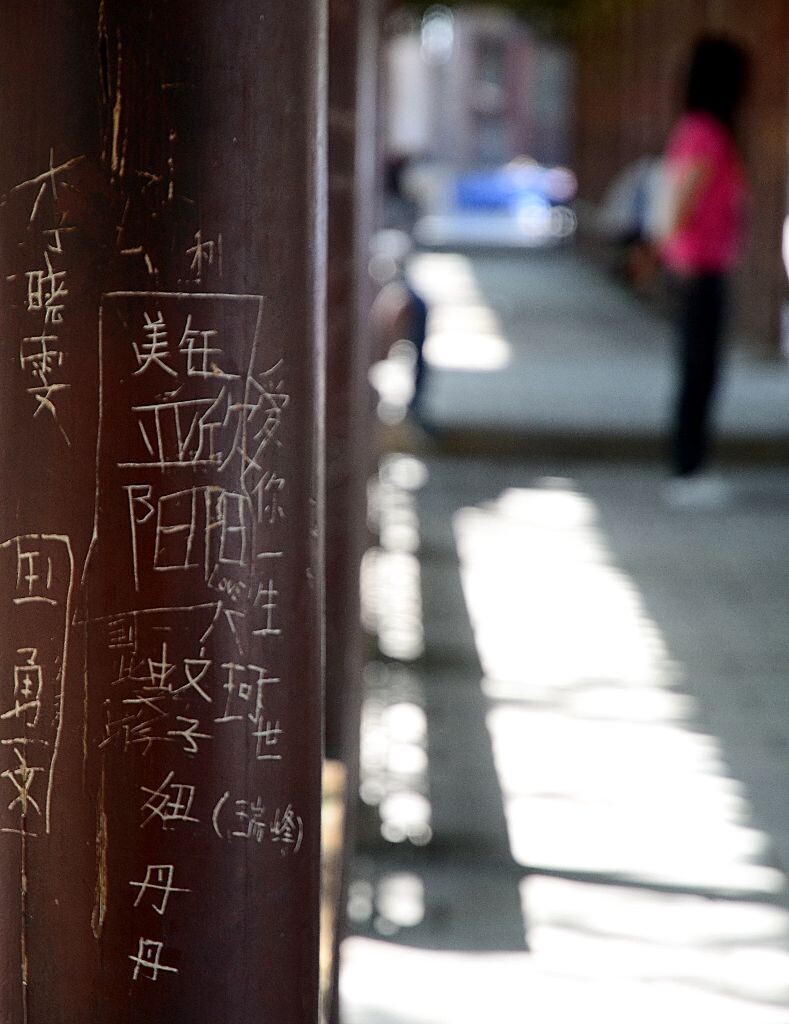 李晓雯
利
美钰
亚欣
阳阳
爱你一生
珂世
国勇
到此一
蚊子
妞
(瑞峰)
丹
丹